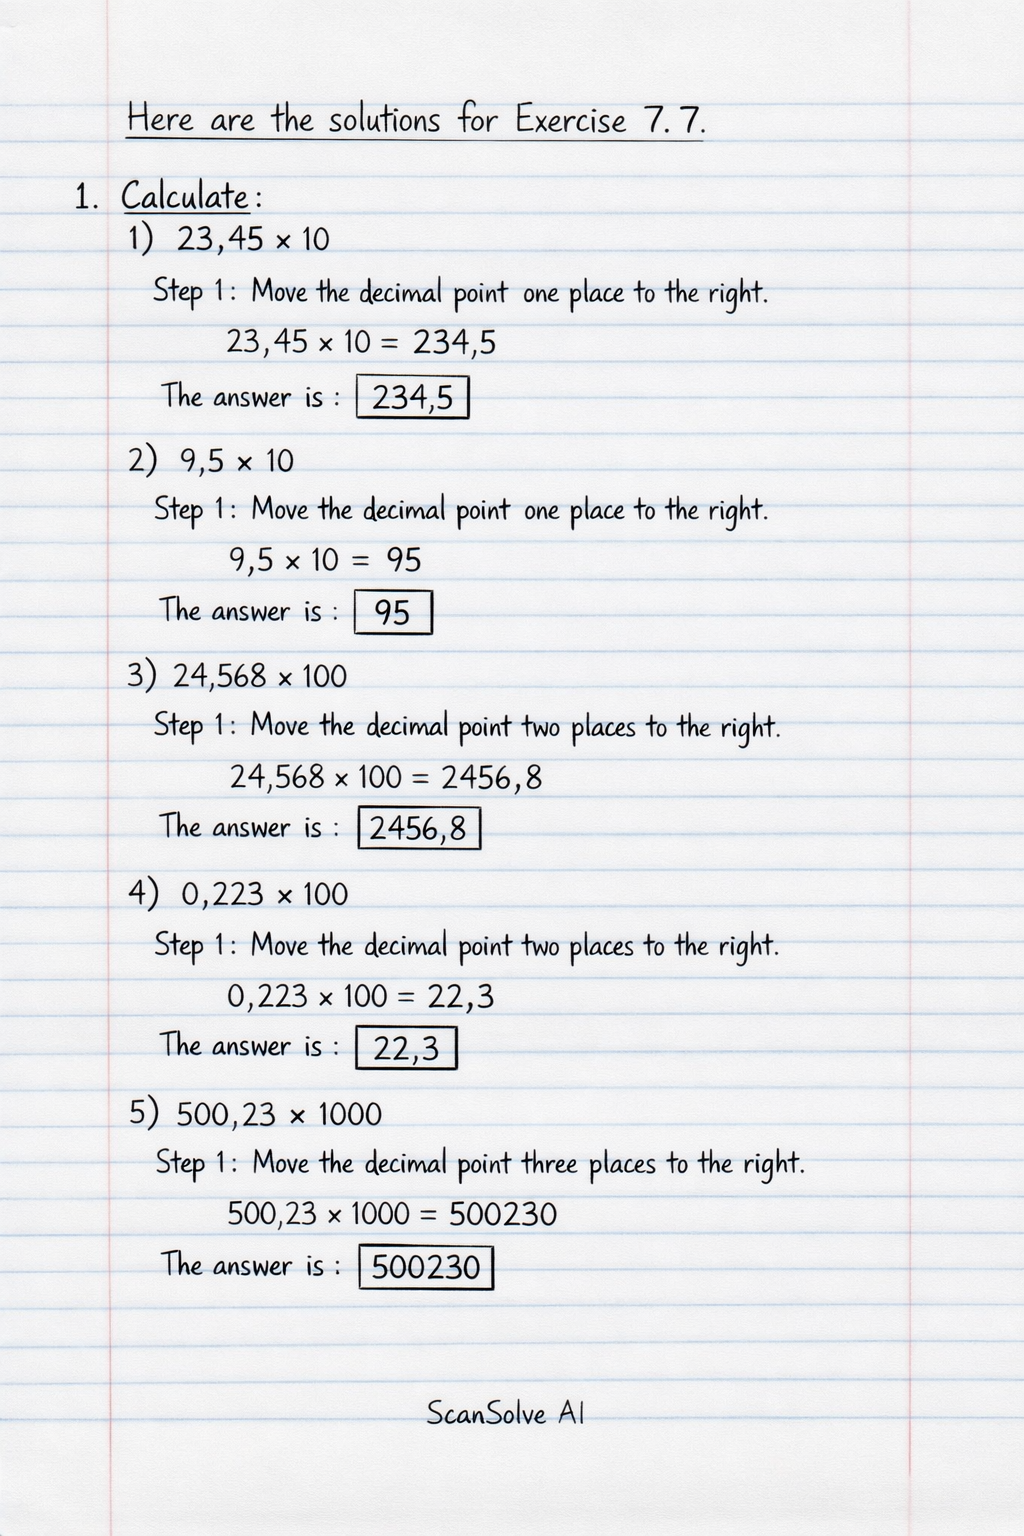 Here are the solutions for Exercise 7.7.
1. Calculate:
1) 23,45 × 10
Step 1: Move the decimal point one place to the right.
23,45 × 10 = 234,5
The answer is: 234,5
2) 9,5 × 10
Step 1: Move the decimal point one place to the right.
9,5 × 10 = 95
The answer is: 95
3) 24,568 × 100
Step 1: Move the decimal point two places to the right.
24,568 × 100 = 2456,8
The answer is: 2456,8
4) 0,223 × 100
Step 1: Move the decimal point two places to the right.
0,223 × 100 = 22,3
The answer is: 22,3
5) 500,23 × 1000
Step 1: Move the decimal point three places to the right.
500,23 × 1000 = 500230
The answer is: 500230
ScanSolve AI